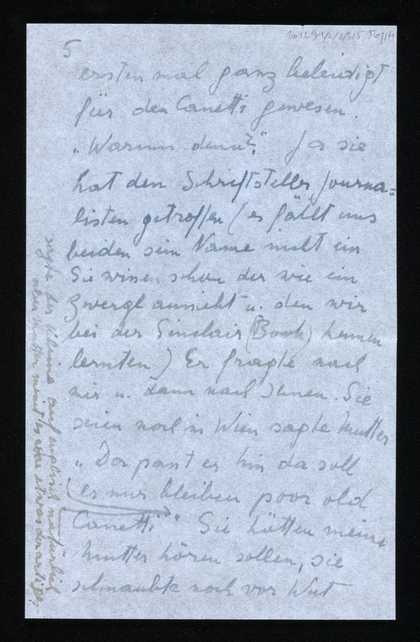 5
ersten mal ganz beleidigt
für den Canetti gewesen.
„Warum denn?" Ja sie
hat den Schriftsteller Journa=
listen getroffen (es fällt uns
beiden sein Name nicht ein
Sie wissen schon der wie ein
Zwergl aussieht u. den wir
bei der Sinclair (Book) kennen
lernten) Er fragte nach
mir u. dann nach Ihnen. Sie
seien noch in Wien sagte Mutter
„Dor passt er hin da soll
er nur bleiben poor old
Canetti" Sie hätten meine
Mutter hören sollen, sie
schnaubte noch vor Wut
sagte der kleine auf englisch natürlich
aber Mutter meint es war etwas derartiges